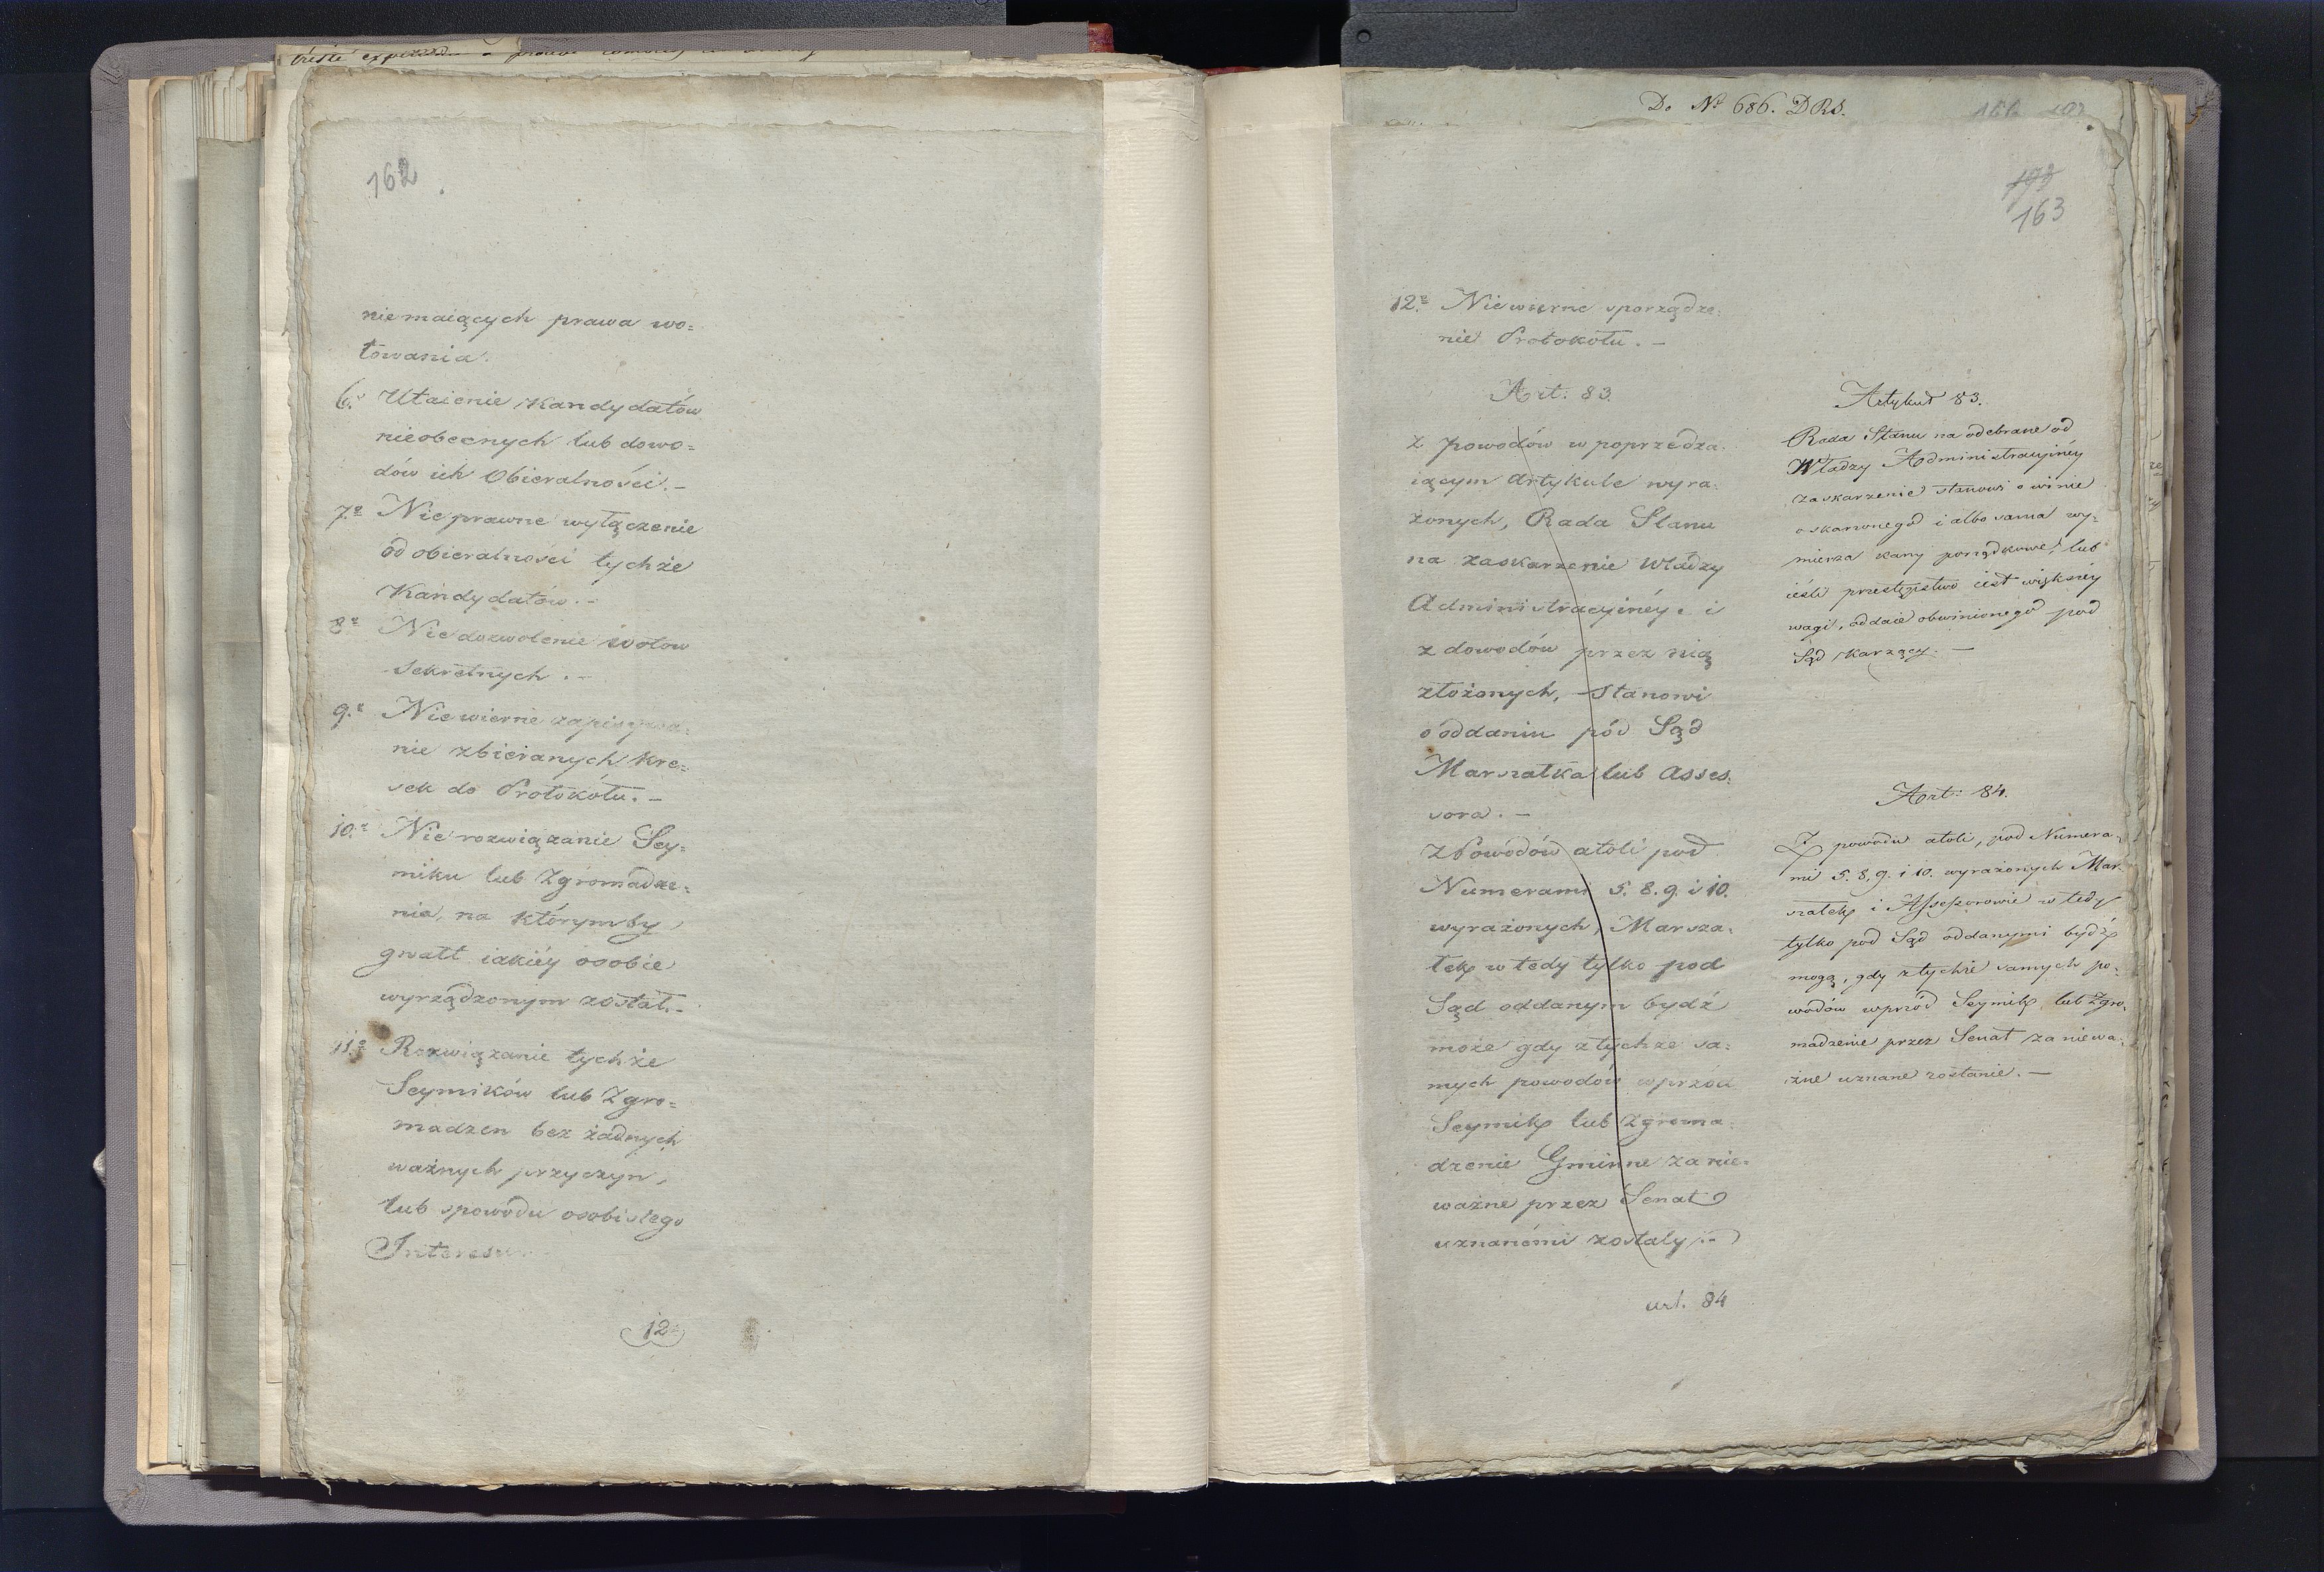 162
niemaiących prawa wo=
towania.
6.º Utaienie Kandydatów
nieobecnych lub dowo=
dów ich Obieralności.-
7.º Nieprawne wyłączenie
od obieralności tychże
Kandydatów.-
8.º Niedozwolenie wotow
sekretnych.-
9.º Niewierne zapisywa=
nie zbieranych kre=
sek do Protokółu.-
10.º Nierozwiązanie Sey=
miku lub Zgromadze=
nia, na którymby
gwałt iakiéy osobie
wyrządzonym został.-
11.º Rozwiązanie tychże
Seymików lub Zgro=
madzen bez żadnych
ważnych przyczyn,
lub zpowodu osobistego
Interesu
12º
Do Nº 686. DRS.
163
12.º Niewierne sporządze=
nie Protokołu.-
Art: 83.
z powodów w poprzedza=
iącym Artykule wyra=
żonych, Rada Stanu
na zaskarżenie Władzy
Administracyinéy, i
z dowodów przez nią
złożonych, stanowi
o oddaniu pód Sąd
Marszałka lub Asses=
sora.-
Z Powodów atoli pod
Numerami 5. 8. 9. i 10.
wyrażonych, Marsza=
łek wtedy tylko pod
Sąd oddanym bydź
może gdy z tychże sa=
mych powodów wprzód
Seymik lub Zgroma=
dzenie Gminne za nie=
ważne przez Senat
uznanémi zostały.-
art. 84
Artykuł 83.
Rada Stanu na odebrane od
Władzy Administracyinéy
zaskarżenie stanowi o winie
oskarżonego i albo sama wy=
mierza kary porządkowe, lub
ieśli przestępstwo iest większéy
wagi, oddaie obwinionego pod
Sąd karzący.-
Art: 84.
Z powodu atoli, pod Numera=
mi 5. 8. 9. i 10. wyrażonych Mar=
szałek i Assessorowie wtedy
tylko pod Sąd oddanymi bydź
mogą, gdy z tychże samych po=
wodów wprzód Seymik lub Zgro=
madzenie przez Senat za niewa=
żne uznane zostanie.-